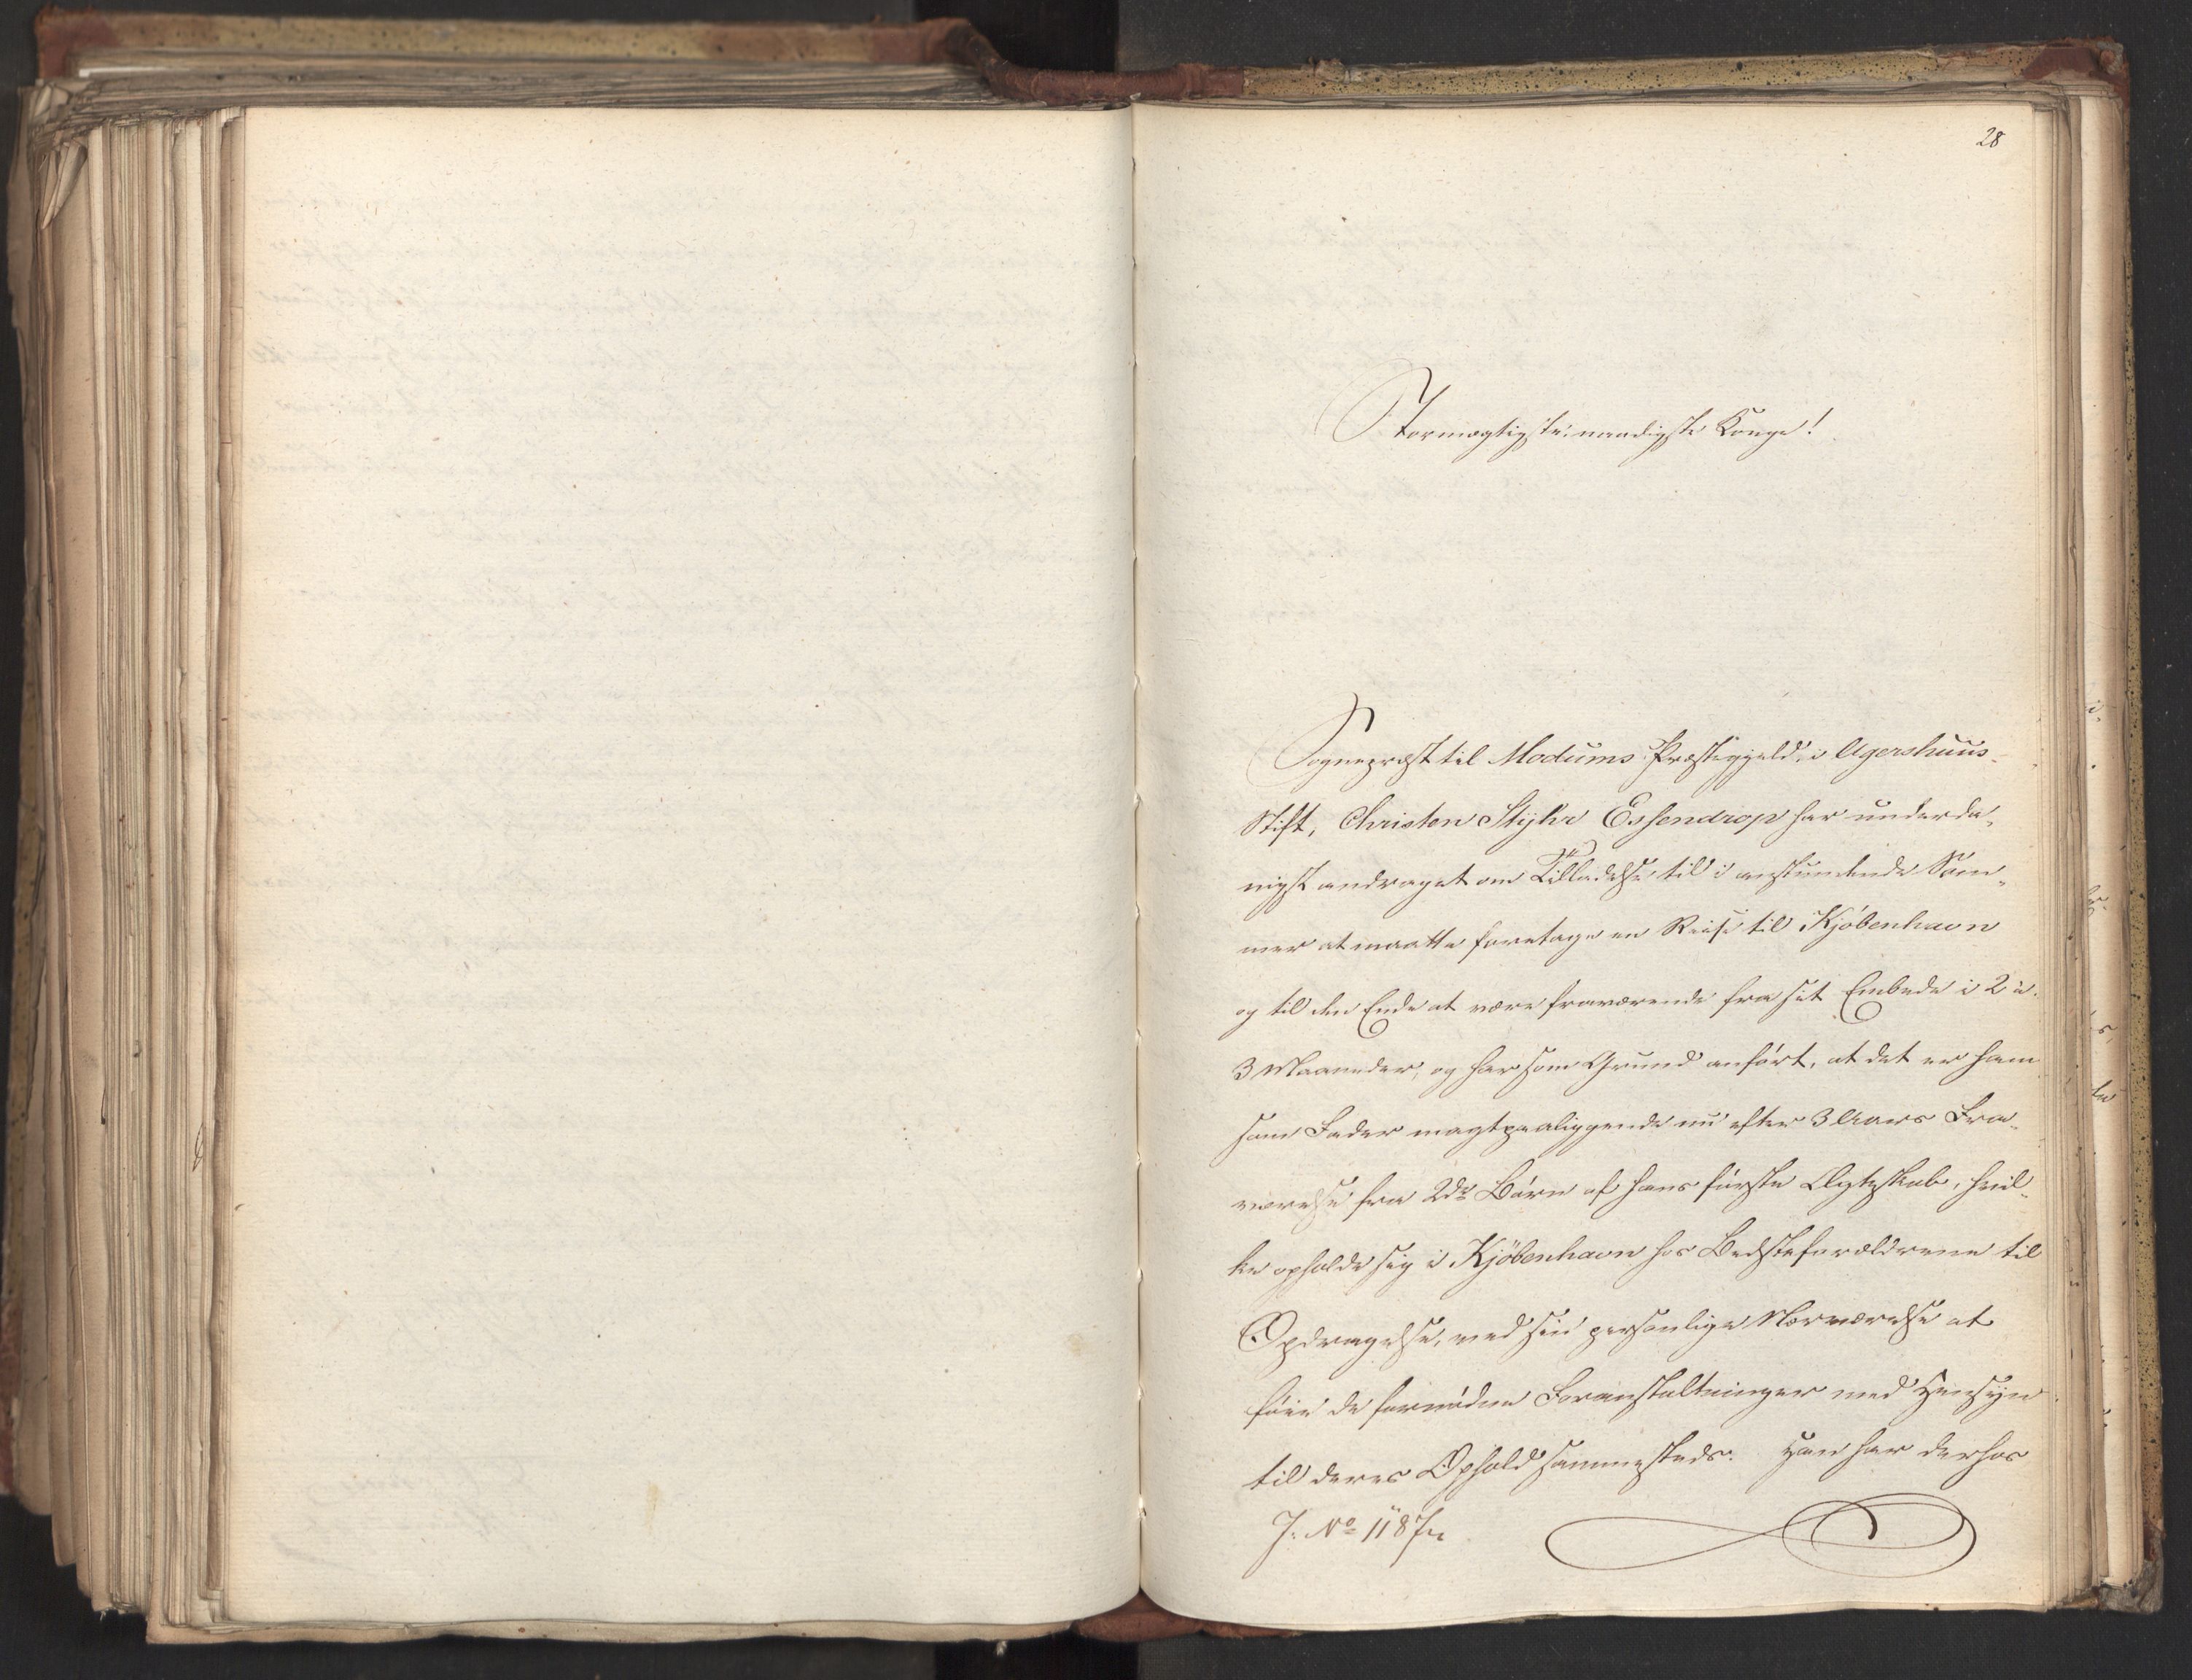 28
Stormægtigste, naadigste Konge!
Sognepræst til Modums Præstegjeld i Agershuus
Stift, Christen Styhr Essendrop har underda-
nigst andraget om Tilladelse til i anstundende Som-
mer at maatte foretage en Reise til Kjöbenhavn
og til den Ende at være fraværende fra sit Embede i 2 à
3 Maaneder, og har som Grund anfört, at det er ham
som Fader magtpaaliggende nu efter 3 Aars Fra-
værelse fra 2de Börn af hans förste Ægteskab, hvil-
ke opholde sig i Kjöbenhavn hos Bedsteforældrene til
Opdragelse, ved sin personlige Nærværelse at
föie de fornödne Foranstaltninger med Hensyn
til deres Ophold sammesteds. Han har derhos
J. No 1187